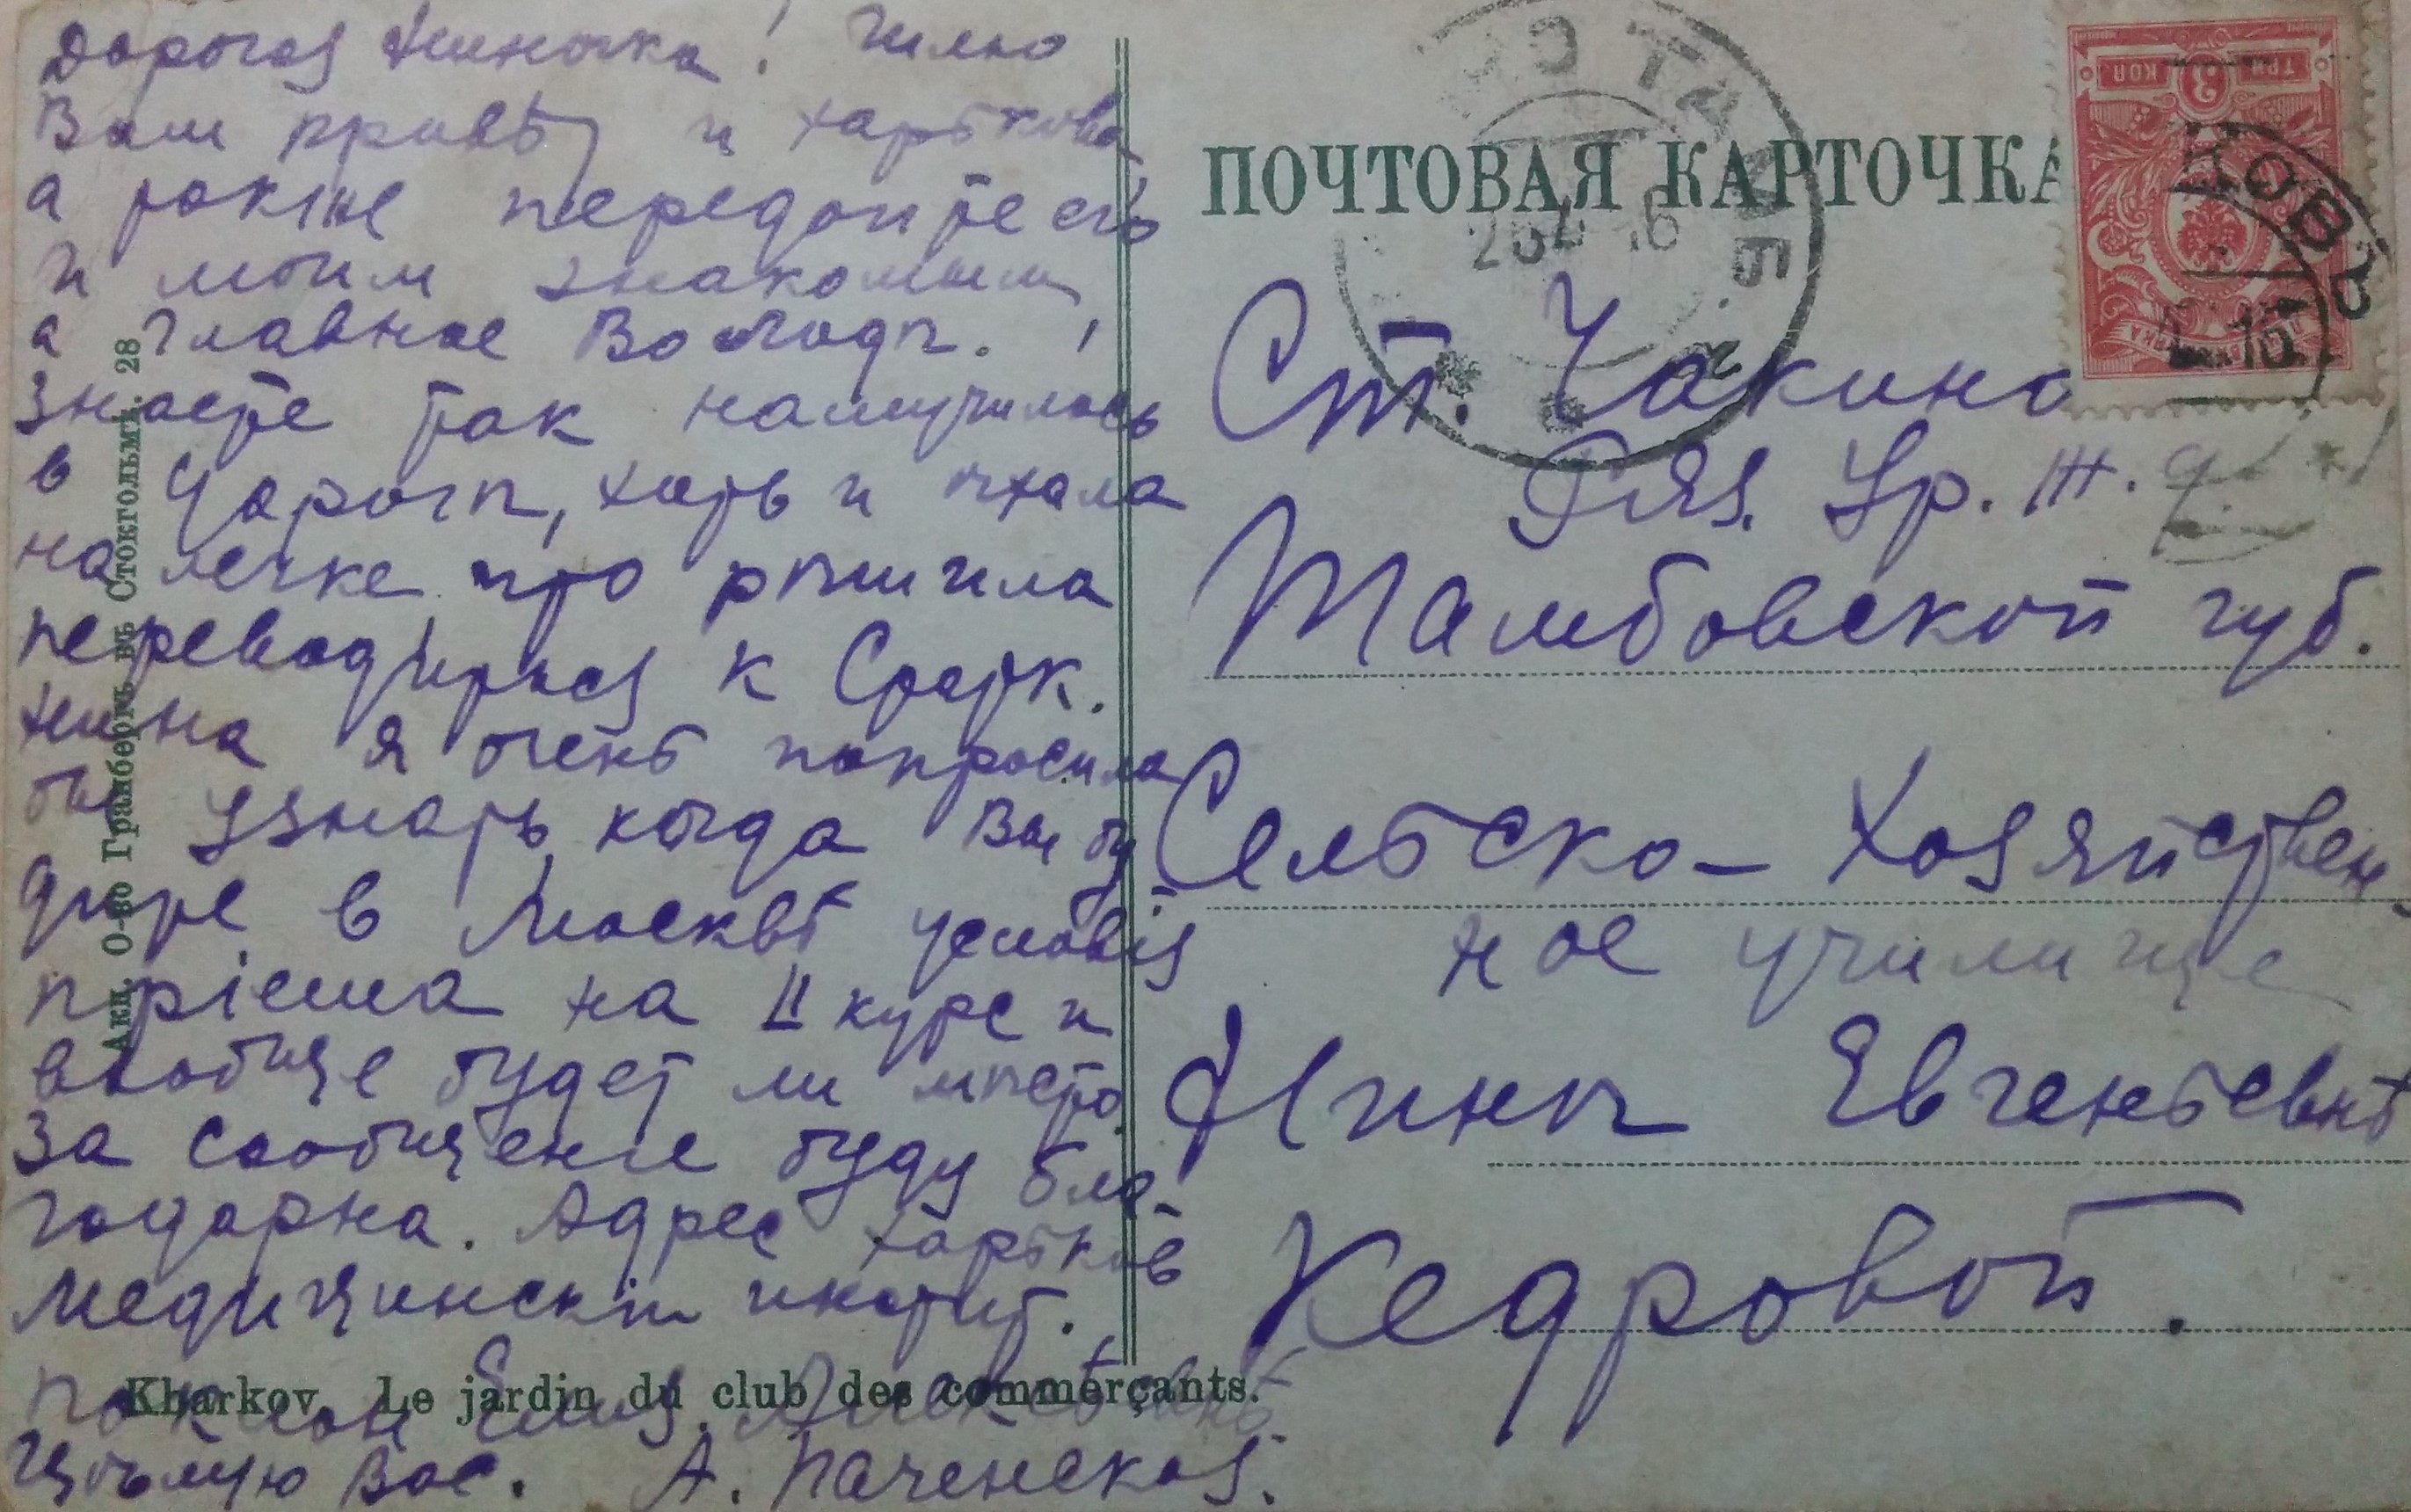 Дорогая Ниночка! Шлю
Вам привѣт и Харькова
а также передайте его
и моим знакомым,
а главное Володѣ.
Знаете так намучилась
в дорогѣ, хоть и ѣхала
на легке что рѣшила
переводиться к
Нина я очень попросила
бы узнать, когда Вы бу
дите в Москвѣ условія
пріема на II курс и
вообще будет ли мѣсто.
За сообщеніе буду бла-
годарна. Адрес Харьков
Медицинскій инстит.
поклон
Цѣлую Вас. А. Паченская.
Акц. О-во Гранбергъ въ Стокгольмѣ. 28
Kharkov. Le jardin du club des commerçants.
ПОЧТОВАЯ КАРТОЧКА
ТРИ 3 КОП
КОВЪ
ПОЧТ
Ст. Чакино
Ряз. Ур. ж. д.
Тамбовской губ.
Сельско-Хозяйствен-
ное училище
Нинѣ Евгеньевнѣ
Кедровой.